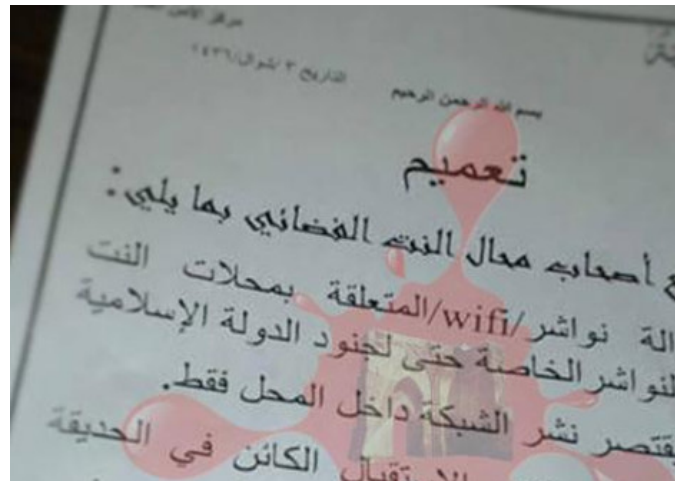 مركز الأمن
التاريخ ٣ /شوال/١٤٣٦
بسم الله الرحمن الرحيم
تعميم
ع أصحاب محال النت الفضائي بما يلي:
الة نواشر/wifi/المتعلقة بمحلات النت
لنواشر الخاصة حتى لجنود الدولة الإسلامية
يقتصر نشر الشبكة داخل المحل فقط.
الكائن في الحديقة